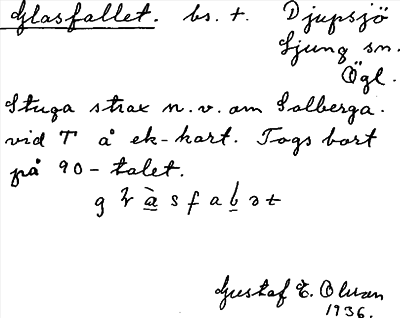 Glasfallet. bs. t. Djupsjö
Ljung sn.
Ögl.
Stuga strax n.v. om Solberga.
vid T å ek-kart. Togs bort
på 90-talet.
Gustaf E. Olsson
1936.